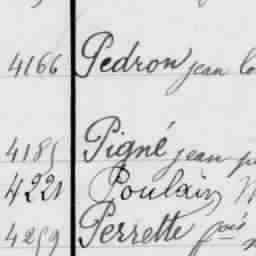 4166 Pedron jean
4185 Pigné jean
4221 Poulain
4259 Perrette